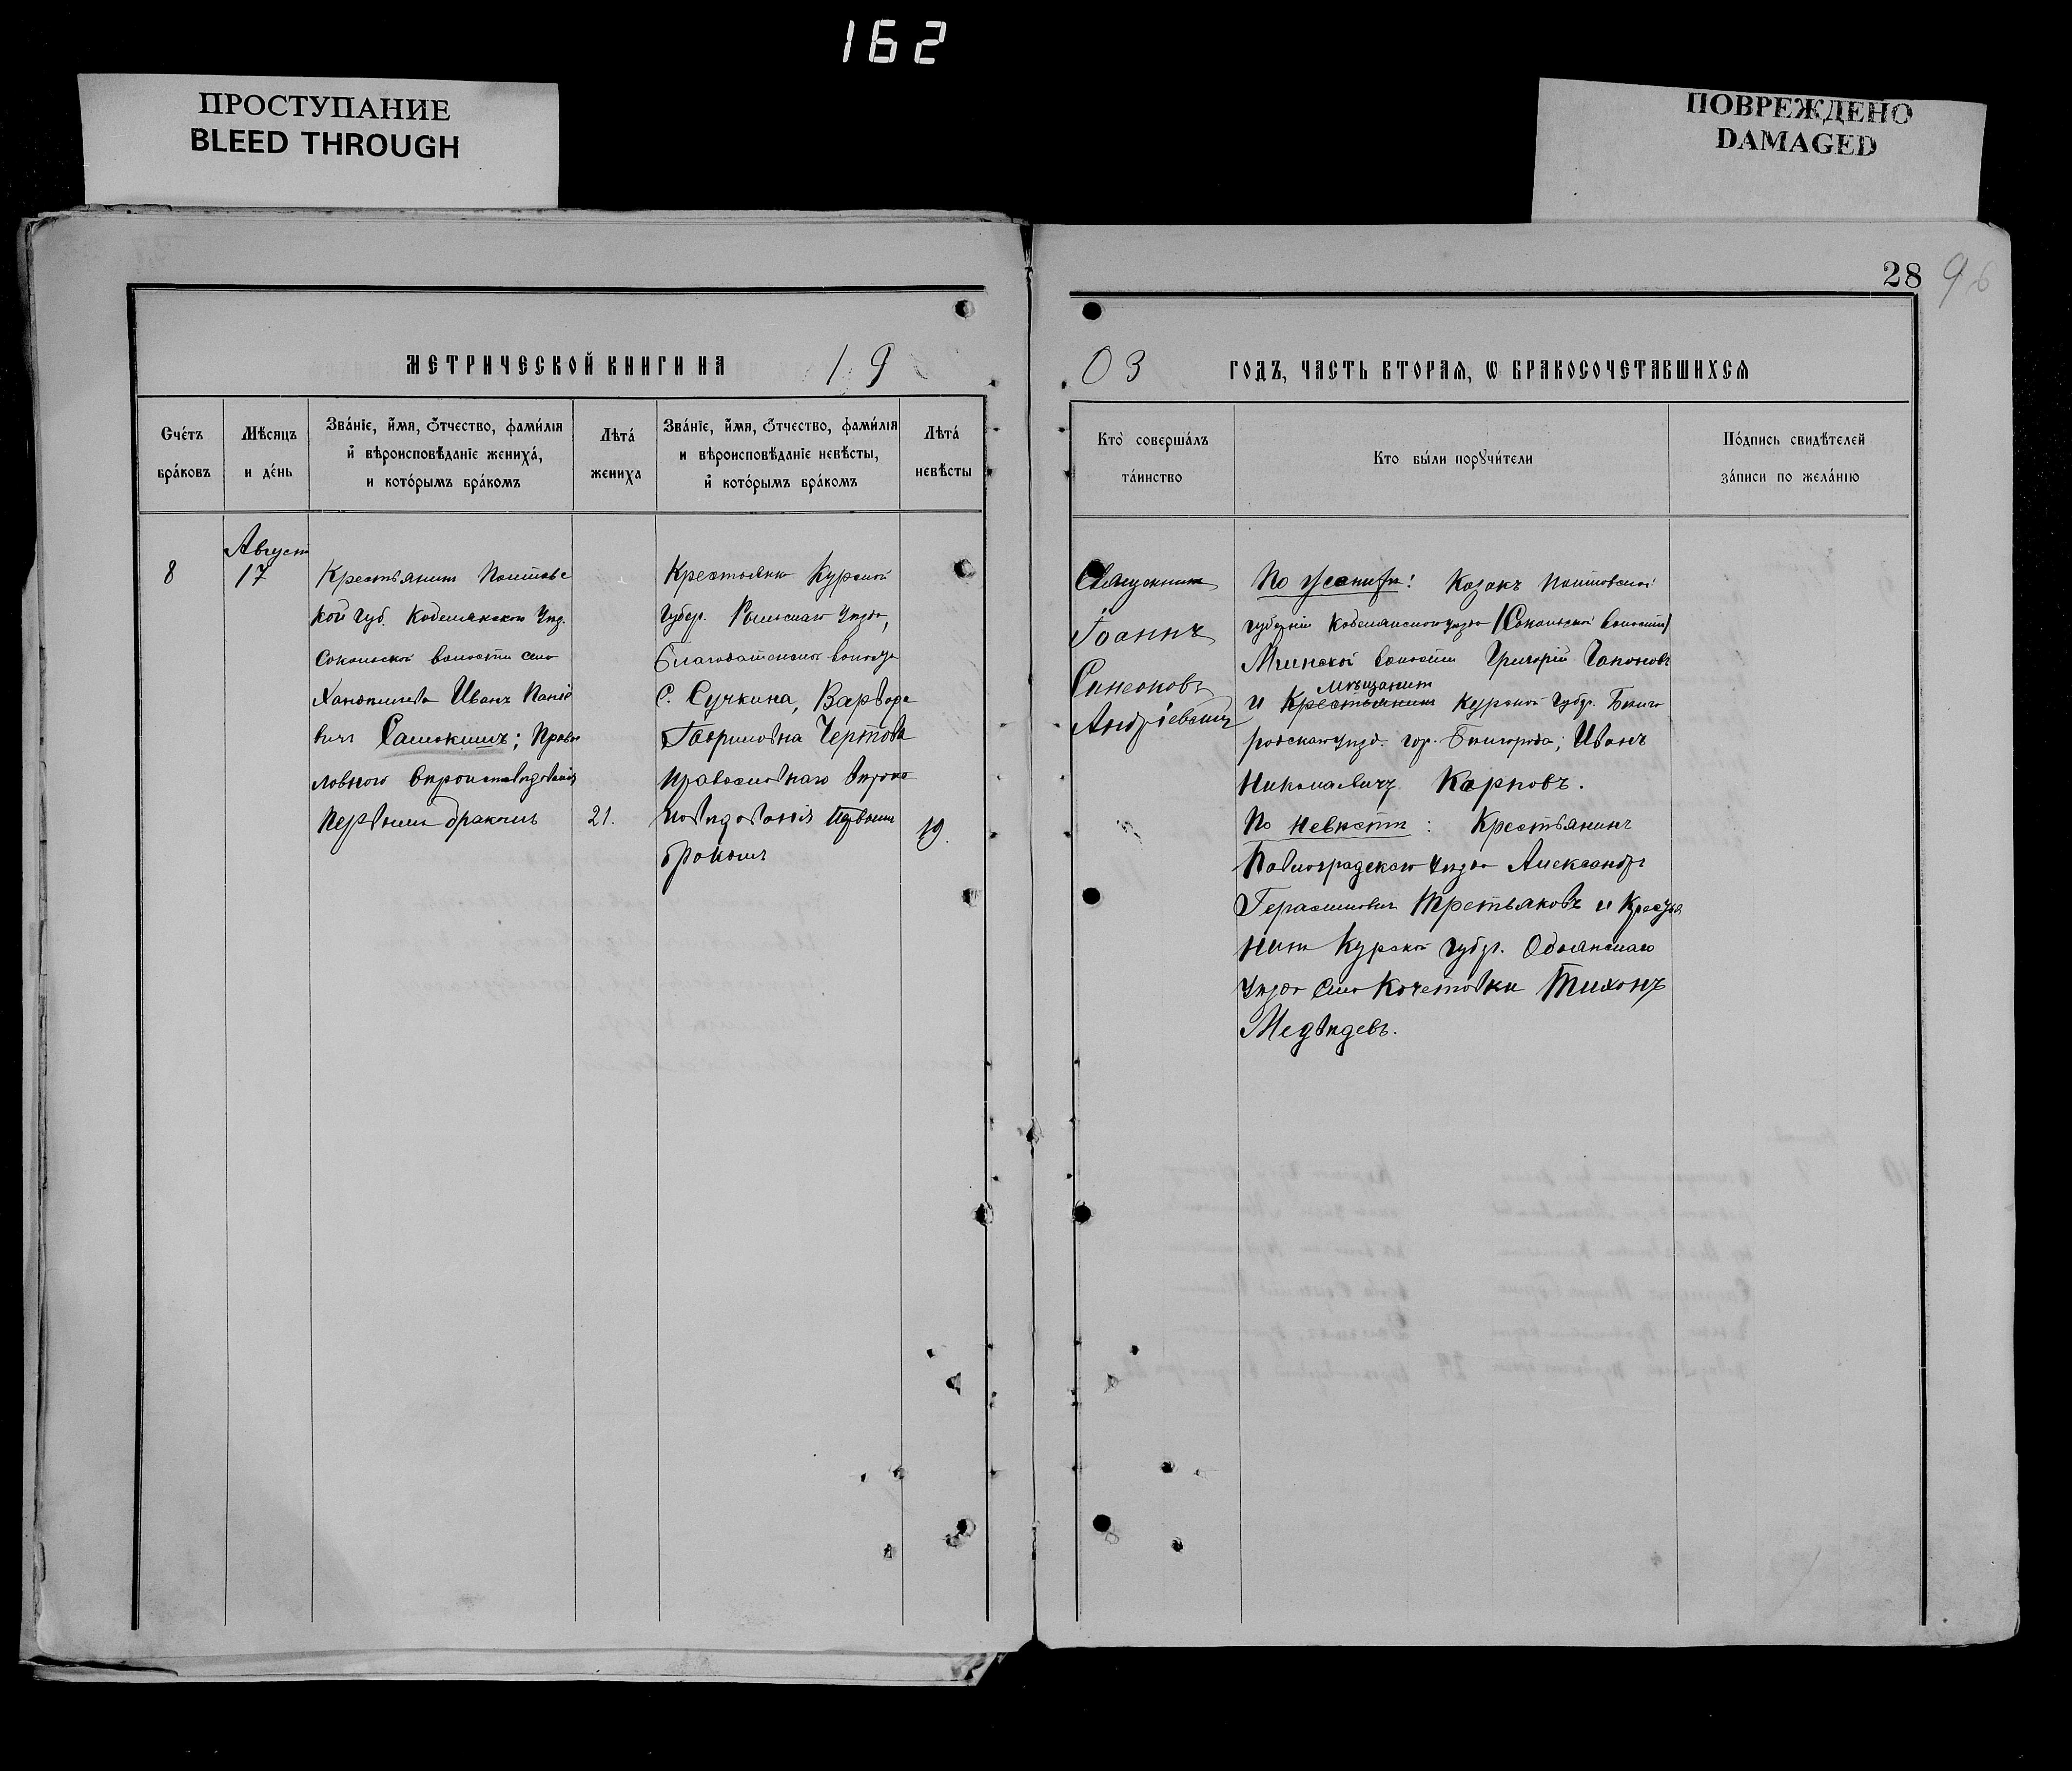 162
ПРОСТУПАНИЕ
BLEED THROUGH
ПОВРЕЖДЕНО
DAMAGED
28 96
МЕТРИЧЕСКОЙ КНИГИ НА 19
03 ГОДЪ, ЧАСТЬ ВТОРАЯ, Ѡ БРАКОСОЧЕТАВШИХСЯ
Счетъ браковъ
Мѣсяцъ и день
Званіе, имя, отчество, фамилія
и вѣроисповѣданіе жениха,
и которымъ бракомъ
Лѣта жениха
Званіе, имя, отчество, фамилія
и вѣроисповѣданіе невѣсты,
и которымъ бракомъ
Лѣта невѣсты
Кто совершалъ
таинство
Кто были поручители
Подпись свидѣтелей
записи по желанію
8
Август
17
Крестьянинъ Полтавс
кой Губ. Кобелякскаго Уѣз.
Сокольской волости село
Иванъ
вичъ ; Правос
лавного вѣроисповѣданія
первымъ бракомъ
21.
Крестьянка Курской
Губер. Рыльскаго Уѣзда,
Благодатенской волости
С. Сучкина, Варвара
Гавриловна Чертова
православнаго вѣроис
повѣданія первымъ
бракомъ
19.
Священникъ
Іоаннъ
Симеоновъ
Андріевскій
По женихѣ: Козакъ Полтавской
губерніи Кобелякскаго уѣзда (Сокольской волости)
волости Григорій Гапоновъ
мѣщанинъ
и Крестьянинъ Курской Губер. Бѣлго
родскаго уѣзд. гор. Бѣлгорода, Иванъ
Николаевичъ Карповъ.
По невѣстѣ: Крестьянинъ
Павлоградскаго Уѣзда Александръ
Герасимовичъ Третьяковъ и Крестья
нинъ Курской Губер. Обоянскаго
Уѣзда Села Кочетовки Тихонъ
Медвѣдевъ.